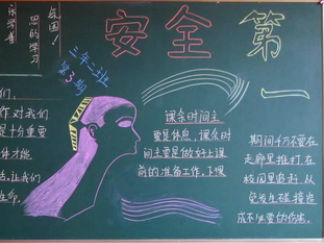 自国!
思的学习
安全第一
三年二班
第3期
们,
作对我们
是十分重要
体才能
活,让我们
生命。
课余时间主
要是休息,课余时
间主要是做好上课
前的准备工作。不喂
期间千万不要在
走廊里推打,在
校园里追赶,从
免发生碰撞造
成不必要的伤害。